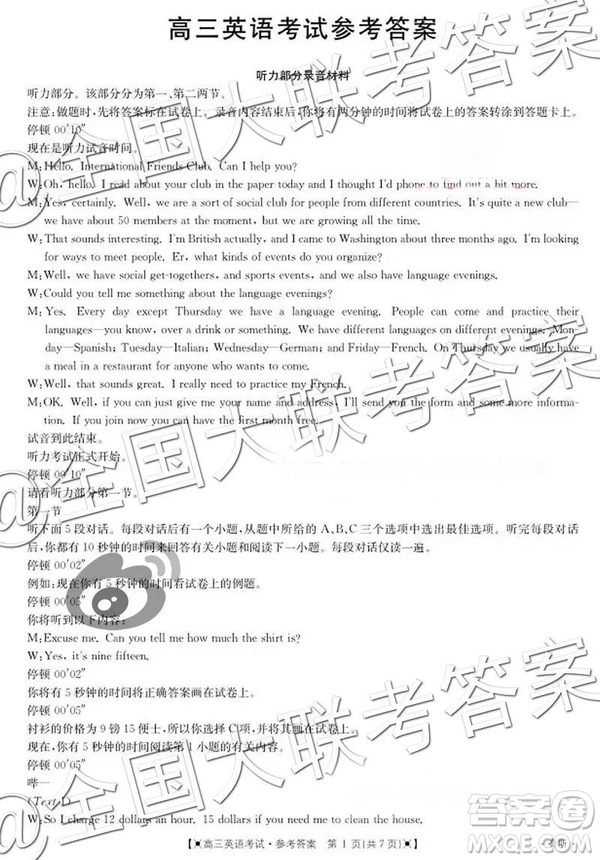 高三英语考试参考答案
听力部分录音材料
听力部分。该部分分为第一、第二两节。
注意:做题时,先将答案标在试卷上。录音内容结束后,你将有两分钟的时间将试卷上的答案转涂到答题卡上。
停顿 00′10″
现在是听力试音时间。
M:Hello. International Friends Club. Can I help you?
W:Oh, hello. I read about your club in the paper today and I thought I'd phone to find out a bit more.
M:Yes, certainly. Well, we are a sort of social club for people from different countries. It's quite a new club—
we have about 50 members at the moment, but we are growing all the time.
W:That sounds interesting. I'm British actually, and I came to Washington about three months ago. I'm looking
for ways to meet people. Er, what kinds of events do you organize?
M:Well, we have social get-togethers, and sports events, and we also have language evenings.
W:Could you tell me something about the language evenings?
M:Yes. Every day except Thursday we have a language evening. People can come and practice their
languages—you know, over a drink or something. We have different languages on different evenings. Mon-
day—Spanish; Tuesday—Italian; Wednesday—German; and Friday—French. On Thursday we usually have
a meal in a restaurant for anyone who wants to come.
W:Well, that sounds great. I really need to practice my French.
M:OK. Well, if you can just give your name and address, I'll send you the form and some more informa-
tion. If you join now you can have the first month free.
试音到此结束。
听力考试正式开始。
停顿 00′10″
请看听力部分第一节。
第一节
听下面 5 段对话。每段对话后有一个小题,从题中所给的 A、B、C 三个选项中选出最佳选项。听完每段对话
后,你都有 10 秒钟的时间来回答有关小题和阅读下一小题。每段对话仅读一遍。
停顿 00′02″
例如:现在你有 5 秒钟的时间看试卷上的例题。
停顿 00′05″
你将听到以下内容:
M:Excuse me. Can you tell me how much the shirt is?
W:Yes, it's nine fifteen.
停顿 00′02″
你将有 5 秒钟的时间将正确答案画在试卷上。
衬衫的价格为 9 镑 15 便士,所以你选择 C 项,并将其画在试卷上。
现在,你有 5 秒钟的时间阅读第 1 小题的有关内容。
停顿 00′05″
哔—
(Text 1)
W:So I charge 12 dollars an hour. 15 dollars if you need me to clean the house.
【高三英语考试·参考答案 第 1 页(共 7 页)】
@全国大联考答案
答案圈
MXQE.COM